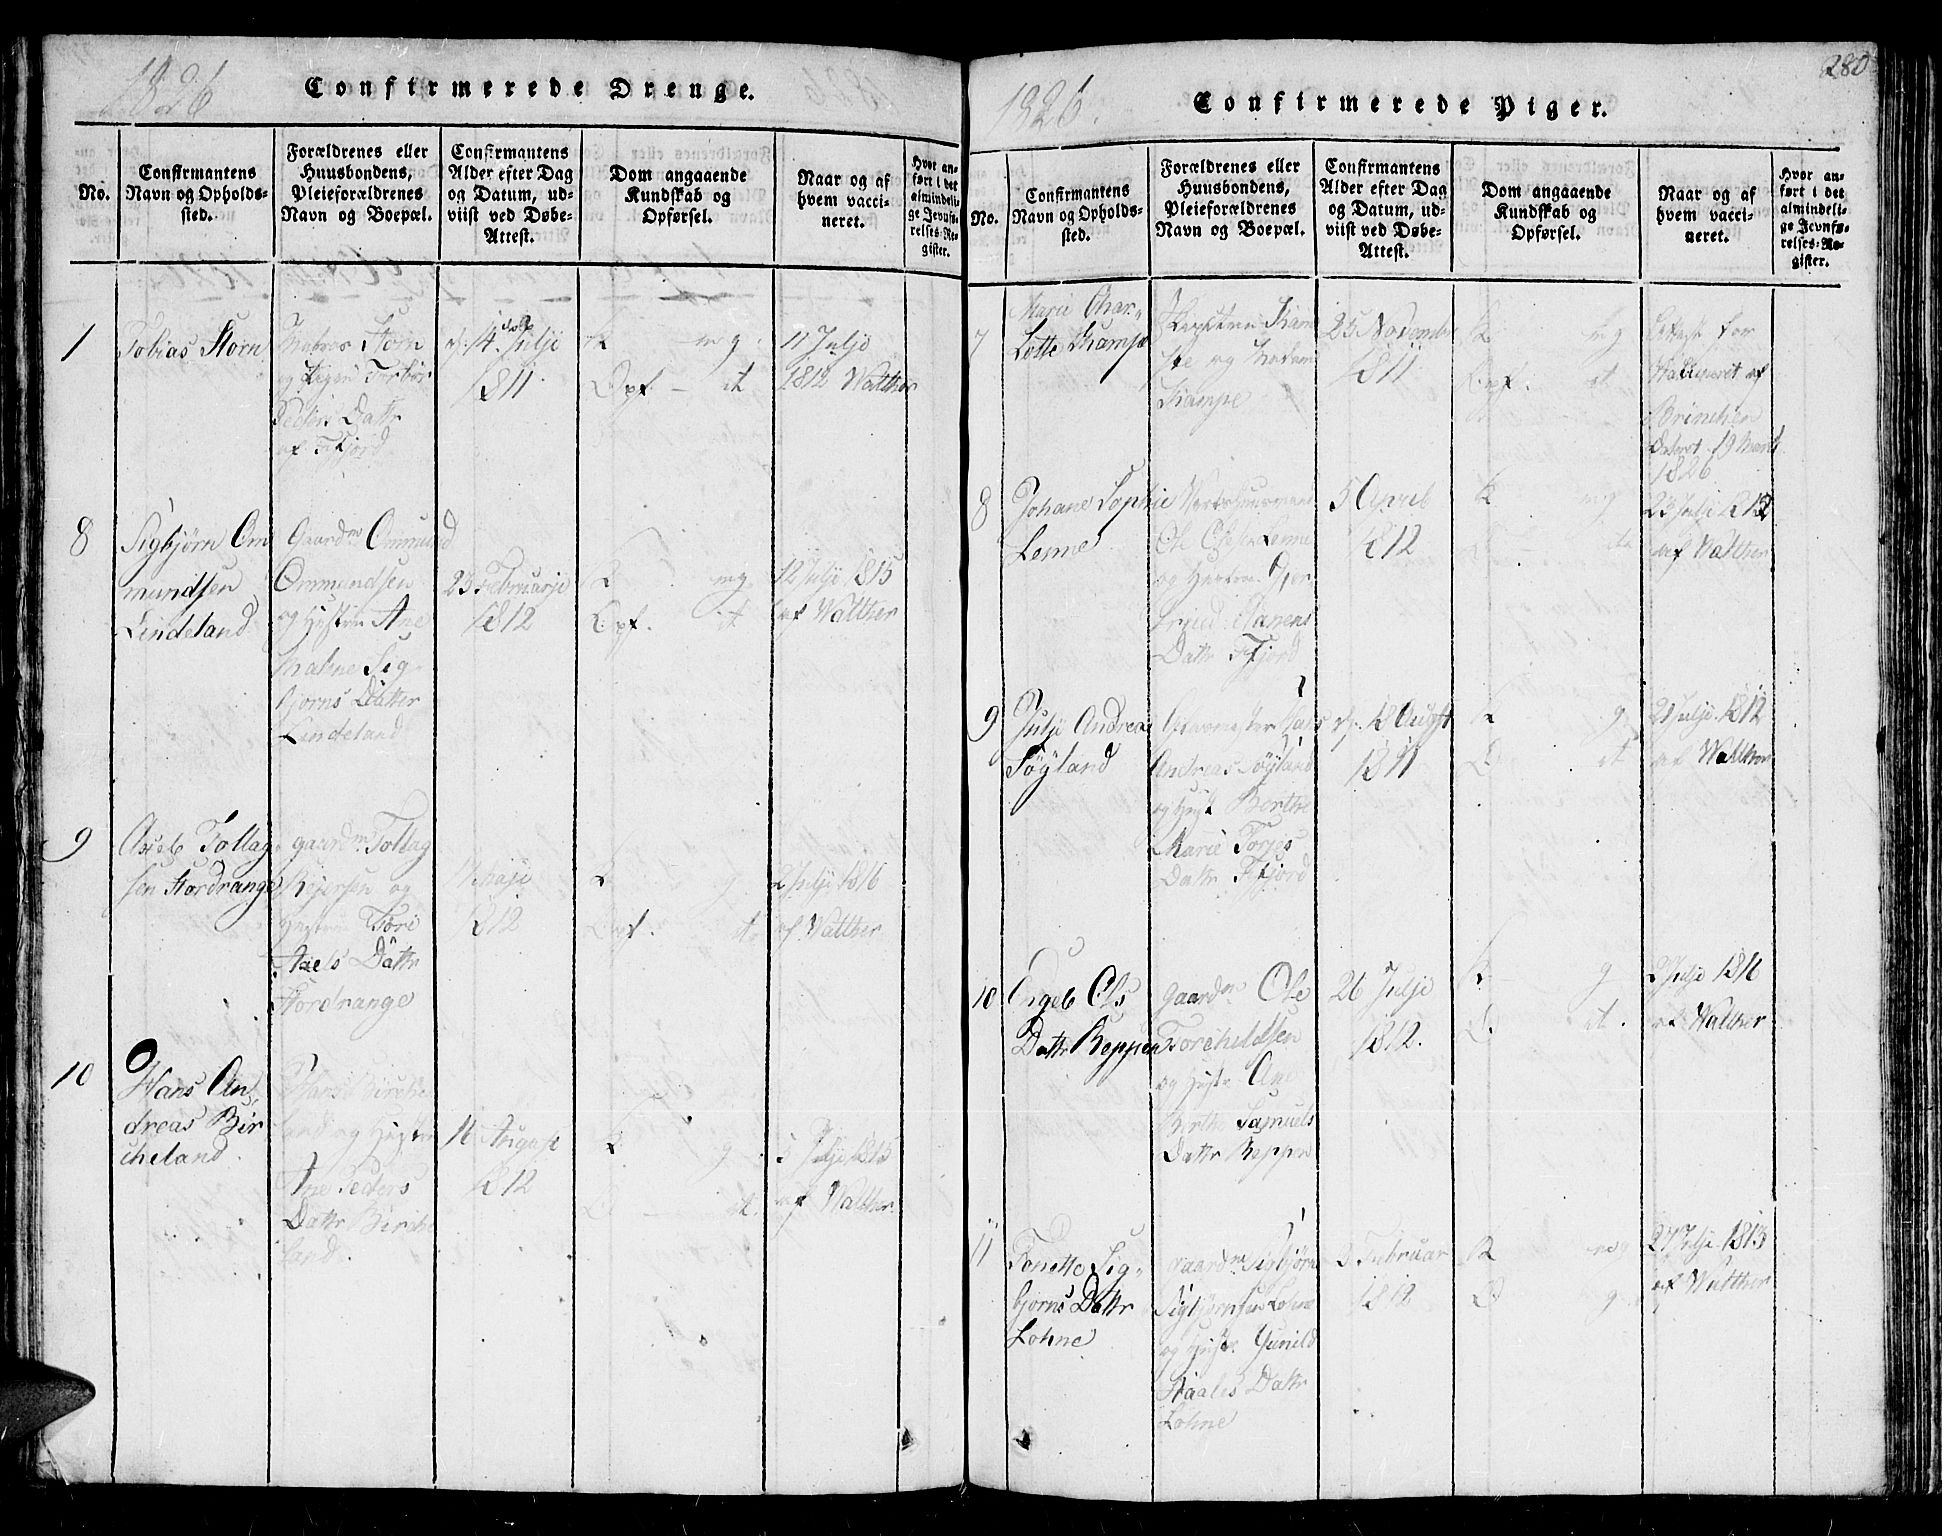 1826
Confirmerede Drenge.
No.
Confirmantens
Navn og Opholds-
sted.
Forældrenes eller
Huusbondens,
Pleieforældrenes
Navn og Boepæl.
Confirmantens
Alder efter Dag
og Datum, ud-
viist ved Døbe-
Attest.
Dom angaaende
Kundskab og
Opførsel.
Naar og af
hvem vacci-
neret.
Hvor an-
ført i det
almindeli-
ge Jevnfø-
relses-Re-
gister.
Tobias Storn
og
Datr
af Fjord
14 Julji
1811
K mg.
Opf. — it
11 Julji
1812 Walther
8
Sigbjørn Om
mundsen
Lindeland
Gaardm Ommund
Ommundsen
og Hustru Ane
Malene Sig
bjørns Datter
Lindeland
23 Februarji
1812
K mg
Opf. it
12 Julji 1815
af Walther
9
Axel Tollag
sen Stordrange
gaardm Tollag
Rejersen og
Hustru Tori
Axels Datr
Stordrange
Maji
1812
K g
Opf. it
2 Julji 1816
af Walther
10
Hans An
dreas Bir
cheland
Hans Birche
land og Hustru
Ane Peders
Datr Birche
land.
16 August
1812
K g
O — it.
3 Julji 1815
af Walther
280
1826.
Confirmerede Piger.
No.
Confirmantens
Navn og Opholds-
sted.
Forældrenes eller
Huusbondens,
Pleieforældrenes
Navn og Boepæl.
Confirmantens
Alder efter Dag
og Datum, ud-
viist ved Døbe-
Attest.
Dom angaaende
Kundskab og
Opførsel.
Naar og af
hvem vacci-
neret.
Hvor an-
ført i det
almindeli-
ge Jevnfø-
relses-Re-
gister.
7
Marie Char-
Lotte
og Madam
25 November
1811
K mg
Opf. it
Attest for
af
Brincher
Dateret 19 Marti
1826
8
Johane Sophie
Lenne
Ole Olsen Lenne
og Hustru Gjer
trud Hanens
Datr Fjord
5 April
1812
K mg
O it
23 Julji 1812
af Walther
9
Julji Andrea
Tøyland
Andreas Tøyland
og Hust Berthe
Marie Torjes
Datr Fjord
18 August
1811
K g
O it
2 Julji 1812
af Walther
10
Engel Ols
Datr Reppen
gaardm Ole
Torchildsen
og Hustr. Ane
Berthe Samuels
Datr Reppen
26 Julji
1812.
K g
O it.
2 Julji 1816
af Walther
11
Tonette Sig-
bjorns Datr
Lohne
gaardm Sigbjørn
Sigbjørnsen Lohne
og Hustr. Gunild
Staales Datr
Lohne
3 Februar
1812
K mg
O g
27 Julji 1813
af Walther